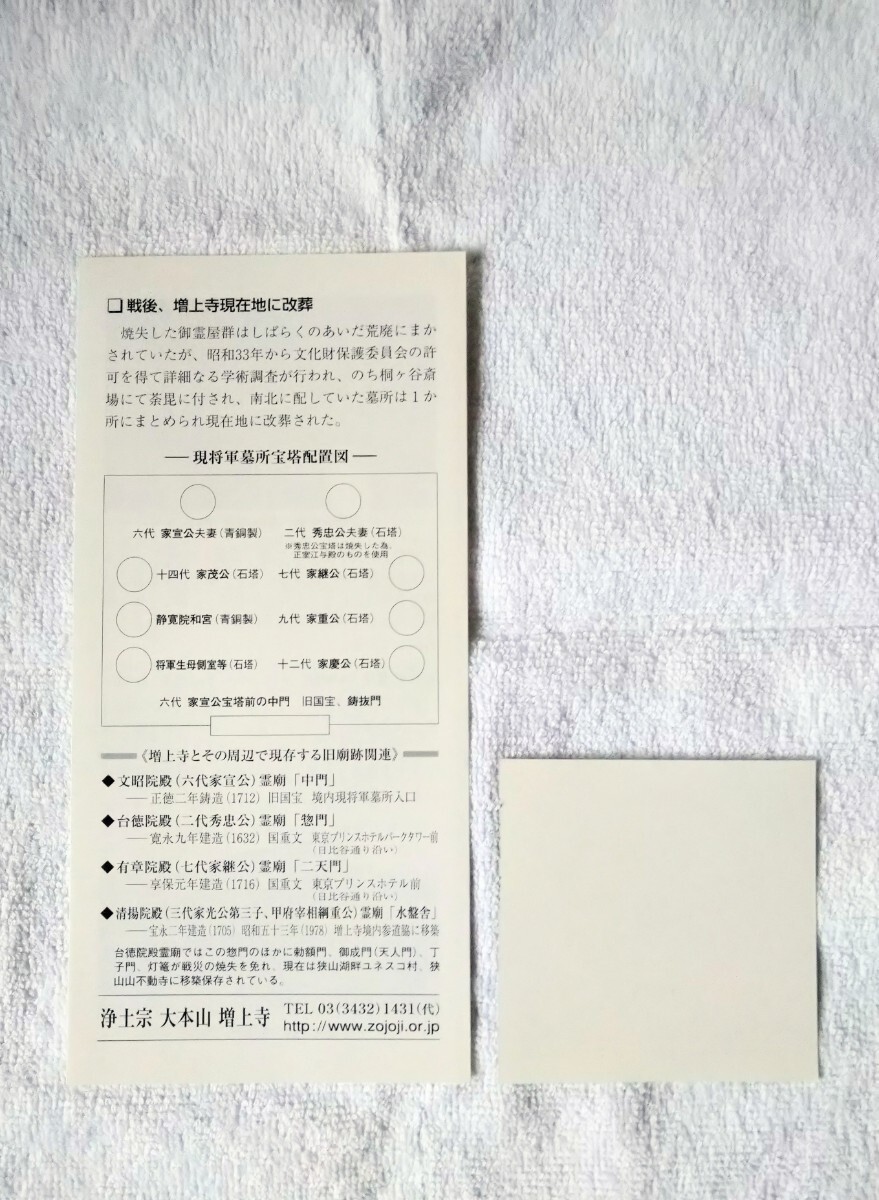 ❏ 戦後、増上寺現在地に改葬
焼失した御霊屋群はしばらくのあいだ荒廃にまか
されていたが、昭和33年から文化財保護委員会の許
可を得て詳細なる学術調査が行われ、のち桐ヶ谷斎
場にて荼毘に付され、南北に配していた墓所は１か
所にまとめられ現在地に改葬された。
― 現将軍墓所宝塔配置図 ―
六代 家宣公夫妻（青銅製） 二代 秀忠公夫妻（石塔）
※秀忠公宝塔は焼失した為、
正室江与殿のものを使用
十四代 家茂公（石塔） 七代 家継公（石塔）
静寛院和宮（青銅製） 九代 家重公（石塔）
将軍生母側室等（石塔） 十二代 家慶公（石塔）
六代 家宣公宝塔前の中門 旧国宝、鋳抜門
《増上寺とその周辺で現存する旧廟跡関連》
◆文昭院殿（六代家宣公）霊廟「中門」
――正徳二年鋳造（1712）旧国宝 境内現将軍墓所入口
◆台徳院殿（二代秀忠公）霊廟「惣門」
――寛永九年建造（1632）国重文 東京プリンスホテルパークタワー前
（日比谷通り沿い）
◆有章院殿（七代家継公）霊廟「二天門」
――享保元年建造（1716）国重文 東京プリンスホテル前
（日比谷通り沿い）
◆清揚院殿（三代家光公第三子、甲府宰相綱重公）霊廟「水盤舎」
――宝永二年建造（1705）昭和五十三年（1978）増上寺境内参道脇に移築
台徳院殿霊廟ではこの惣門のほかに勅額門、御成門（天人門）、丁
子門、灯篭が戦災の焼失を免れ、現在は狭山湖畔ユネスコ村、狭
山山不動寺に移築保存されている。
浄土宗 大本山 増上寺 TEL 03（3432）1431（代）
http://www.zojoji.or.jp